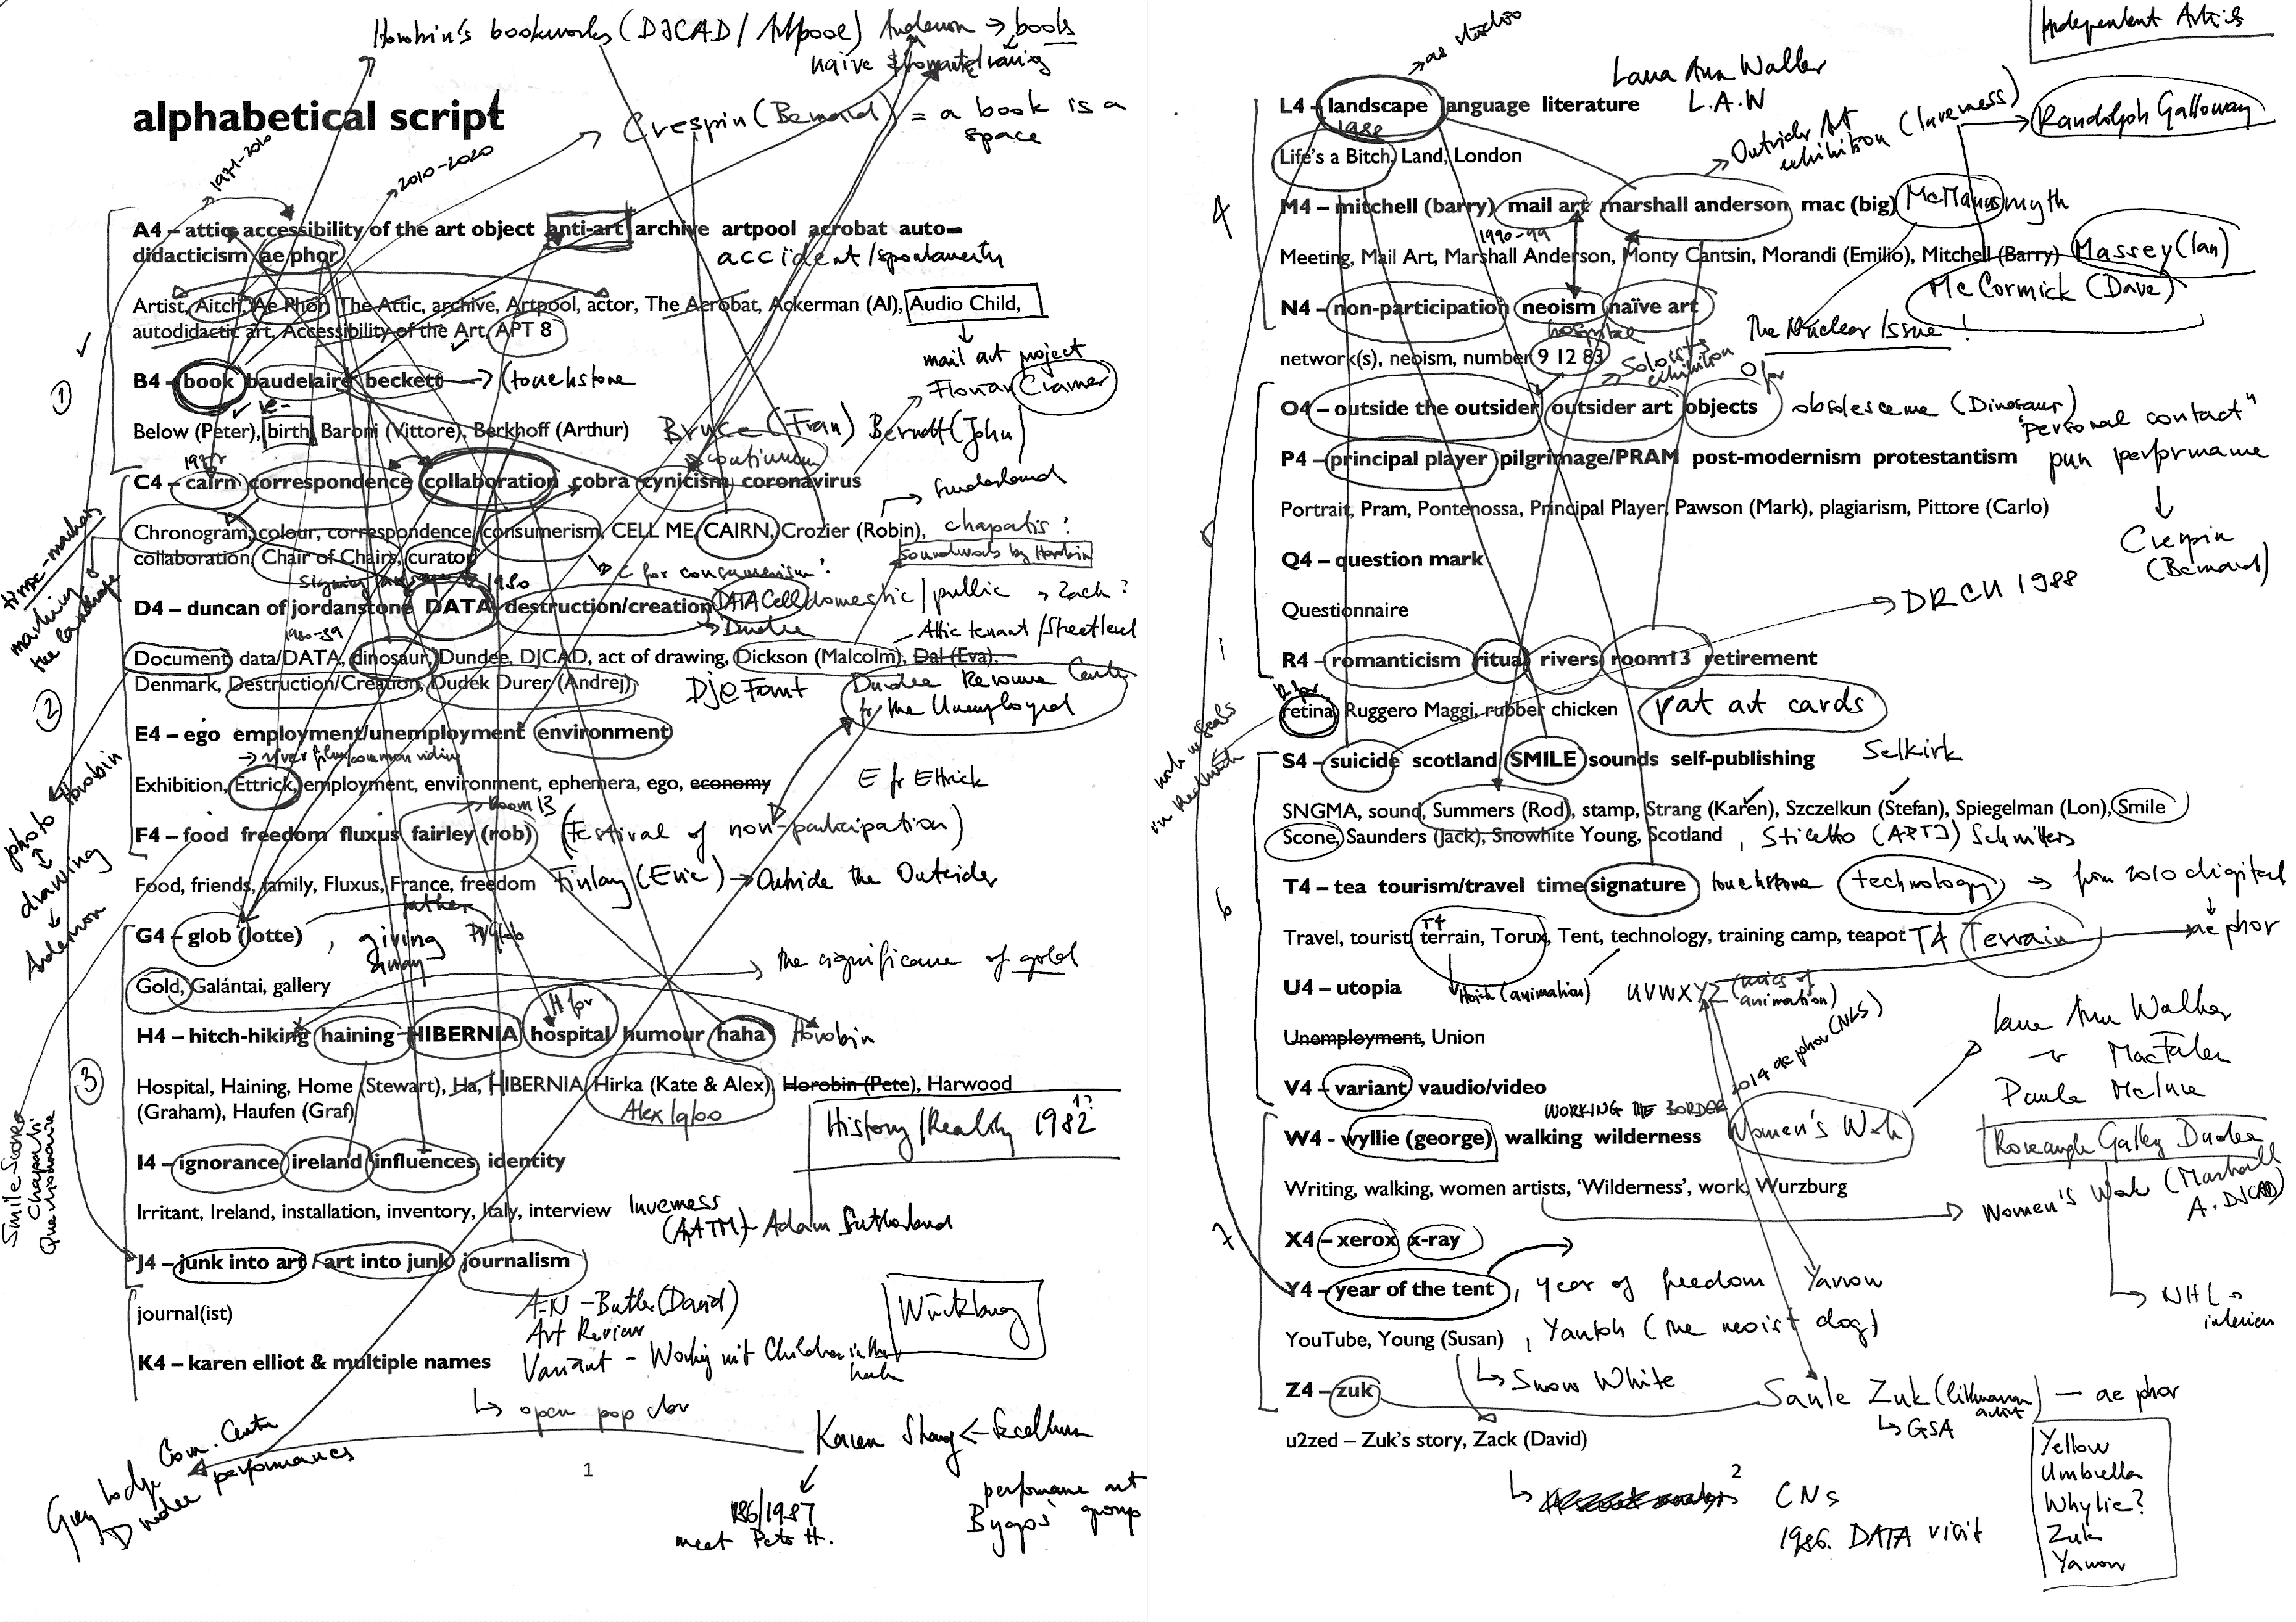 Horobin's bookworks (DJCAD / Artpool) Anderson → books
naive drawing
alphabetical script
Crespin (Bernard) = a book is a
space
1971-2010
2010-2020
A4 – attic accessibility of the art object anti-art archive artpool acrobat auto-
didacticism ae phor
accident/spontaneity
Artist, Aitch, Ae Phor, The Attic, archive, Artpool, actor, The Acrobat, Ackerman (Al), Audio Child,
autodidactic art, Accessibility of the Art, APT 8
mail art project
B4 – book baudelaire beckett → (touchstone
Florian Cramer
Below (Peter), birth, Baroni (Vittore), Berkhoff (Arthur) Bruce (Fran) Berndt (John)
continuum
C4 – cairn correspondence collaboration cobra cynicism coronavirus
Sunderland
Chronogram, colour, correspondence, consumerism, CELL ME, CAIRN, Crozier (Robin), chapatis?
collaboration, Chair of Chairs, curator
soundworks by Horobin
C for consumerism?
1980
D4 – duncan of jordanstone DATA destruction/creation DATA Cell domestic / public → Zack?
Dundee
Attic tenant / Streetlevel
1980-89
Document, data/DATA, dinosaur, Dundee, DJCAD, act of drawing, Dickson (Malcolm), Dal (Eva),
Denmark, Destruction/Creation, Dudek Durer (Andrej)
Dundee Resource Center
for the Unemployed
E4 – ego employment/unemployment environment
→ river film/common riding
Exhibition, Ettrick, employment, environment, ephemera, ego, economy
E for Ettrick
Room 13
F4 – food freedom fluxus fairley (rob) (Festival of non-participation)
Food, friends, family, Fluxus, France, freedom Finlay (Eric) → Outside the Outsider
father
G4 – glob (lotte) , giving
away
the significance of gold
Gold, Galántai, gallery
H for
H4 – hitch-hiking haining HIBERNIA hospital humour haha Horobin
Hospital, Haining, Home (Stewart), Ha, HIBERNIA, Hirka (Kate & Alex), Horobin (Pete), Harwood
(Graham), Haufen (Graf)
Alex 19/00
History/Reality 1982
I4 – ignorance ireland influences identity
Irritant, Ireland, installation, inventory, Italy, interview Inverness
(AATM) – Adam Sutherland
J4 – junk into art / art into junk journalism
journal(ist)
A-N – Butler (David)
Art Review
Würzburg
K4 – karen elliot & multiple names
Variant – Working with Children in the
open pop
Karen Strang
186/1987
meet Pete H.
performance art
group
Com. Centre
performances
Grey Lodge
Dundee
time-markers
marking
the landscape
photo Horobin
drawing
Anderson
Smile Scone
Chapatti
Questionnaire
1
2
3
1
as studio
Independent Artists
Lana Ann Waller
L.A.W
L4 – landscape language literature
1988
Life's a Bitch, Land, London
Outsider Art
exhibition (Inverness)
Randolph Galloway
M4 – mitchell (barry) mail art marshall anderson mac (big) McManus myth
1990-99
Meeting, Mail Art, Marshall Anderson, Monty Cantsin, Morandi (Emilio), Mitchell (Barry) Massey (Ian)
McCormick (Dave)
N4 – non-participation neoism naïve art
The Nuclear Issue!
network(s), neoism, number 9 12 83
Soloists
exhibition
O for
O4 – outside the outsider outsider art objects obsolescence (Dinosaur)
"personal contact"
P4 – principal player pilgrimage/PRAM post-modernism protestantism pun performance
Portrait, Pram, Pontenossa, Principal Player, Pawson (Mark), plagiarism, Pittore (Carlo)
Crespin
(Bernard)
Q4 – question mark
Questionnaire
DRCU 1988
R4 – romanticism ritual rivers room13 retirement
R for
retina, Ruggero Maggi, rubber chicken rat art cards
S4 – suicide scotland SMILE sounds self-publishing Selkirk
SNGMA, sound, Summers (Rod), stamp, Strang (Karen), Szczelkun (Stefan), Spiegelman (Lon), Smile
Scone, Saunders (Jack), Snowhite Young, Scotland , Stiletto (APT3) Schwitters
T4 – tea tourism/travel time signature touchstone technology → from 2010 digital
T4
Travel, tourist, terrain, Torux, Tent, technology, training camp, teapot T4 Terrain → ae phor
U4 – utopia
(animation) UVWXYZ (series of
animation)
Unemployment, Union
2014 ae phor (NLS)
V4 – variant vaudio/video
WORKING THE BORDER
W4 - wyllie (george) walking wilderness Women's Work
Lana Ann Walker
Paula
Roseangle Gallery Dundee
Writing, walking, women artists, 'Wilderness', work, Wurzburg
Women's Work (Marshall
A. DJCAD)
X4 – xerox x-ray
Y4 – year of the tent, year of freedom Yarrow
YouTube, Young (Susan) , Yantoh (the neoist dog)
NHL
Snow White
Z4 – zuk
Saule Zuk (lithuanian
artist) — ae phor
GSA
u2zed – Zuk's story, Zack (David)
CNs
1986. DATA visit
Yellow
Umbrella
Whylie?
Zuk
Yarrow
4
6
7
2